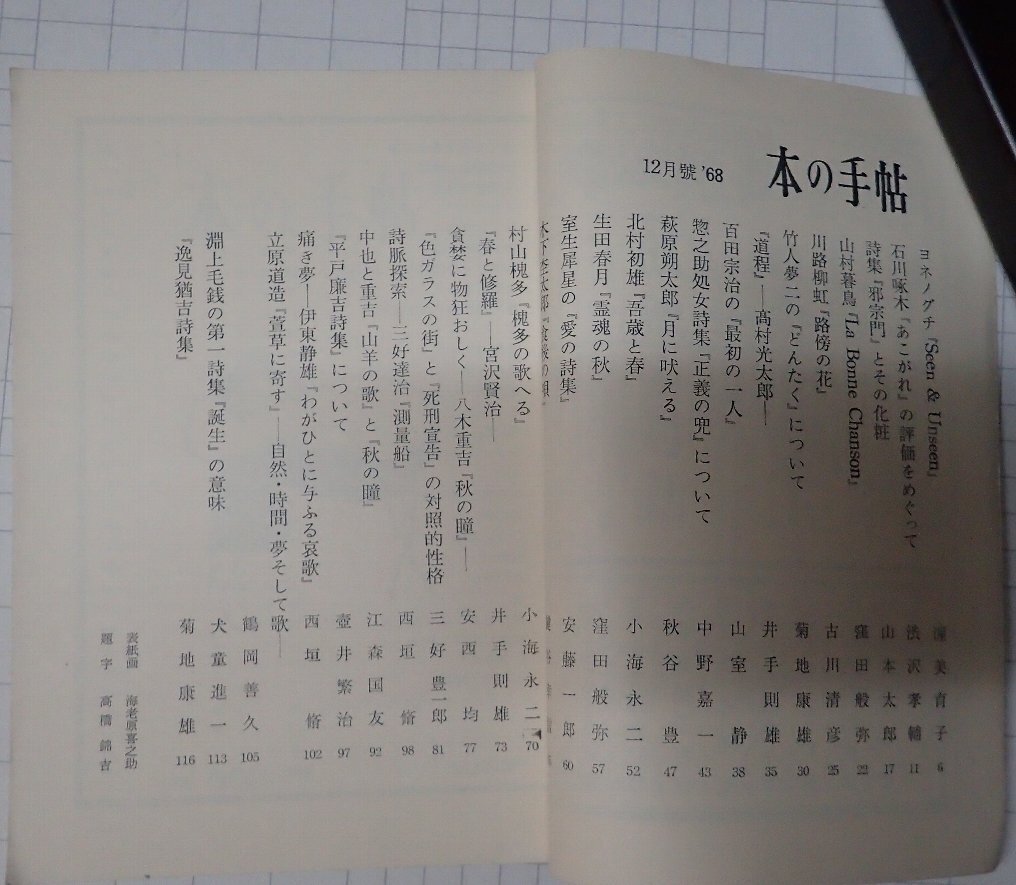 本の手帖
12月號 '68
ヨネノグチ『Seen & Unseen』 美育子 6
石川啄木『あこがれ』の評価をめぐって 渋沢孝輔 11
詩集『邪宗門』とその化粧 山本太郎 17
山村暮鳥『La Bonne Chanson』 窪田般弥 22
川路柳虹『路傍の花』 古川清彦 25
竹人夢二の『どんたく』について 菊地康雄 30
『道程』——高村光太郎—— 井手則雄 35
百田宗治の『最初の一人』 山室静 38
惣之助処女詩集『正義の兜』について 中野嘉一 43
萩原朔太郎『月に吠える』 秋谷豊 47
北村初雄『吾歳と春』 小海永二 52
生田春月『霊魂の秋』 窪田般弥 57
室生犀星の『愛の詩集』 安藤一郎 60
木下杢太郎『食後の唄』
村山槐多『槐多の歌へる』 小海永二 70
『春と修羅』——宮沢賢治—— 井手則雄 73
貪婪に物狂おしく——八木重吉『秋の瞳』—— 安西均 77
『色ガラスの街』と『死刑宣告』の対照的性格 三好豊一郎 81
詩脈探索——三好達治『測量船』 西垣脩 98
中也と重吉『山羊の歌』と『秋の瞳』 江森国友 92
『平戸廉吉詩集』について 壺井繁治 97
痛き夢——伊東静雄『わがひとに与ふる哀歌』 西垣脩 102
立原道造『萱草に寄す』——自然・時間・夢そして歌—— 鶴岡善久 105
淵上毛銭の第一詩集『誕生』の意味 犬童進一 113
『逸見猶吉詩集』 菊地康雄 116
表紙画 海老原喜之助
題字 高橋錦吉